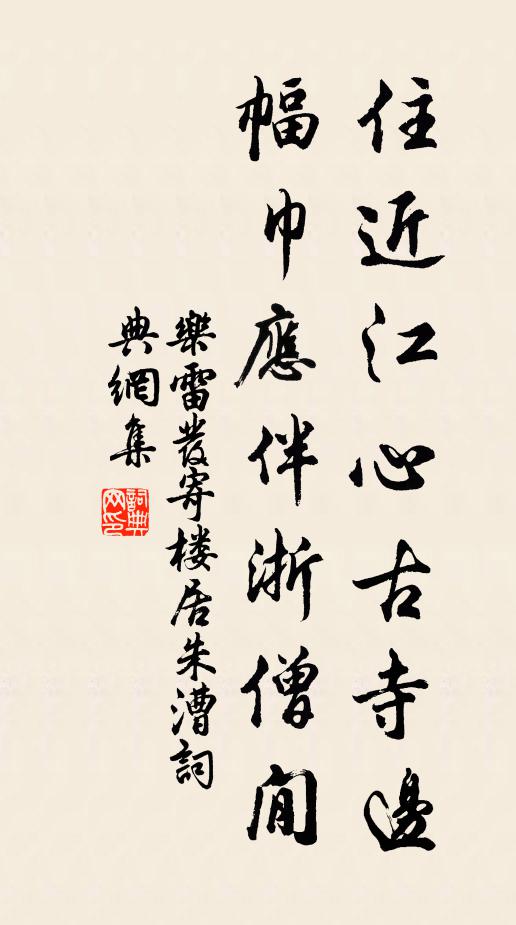 住近江心古寺邊
幅巾應伴浙僧閒
樂雷發寄楼居朱漕詞
典網集
詞典网印